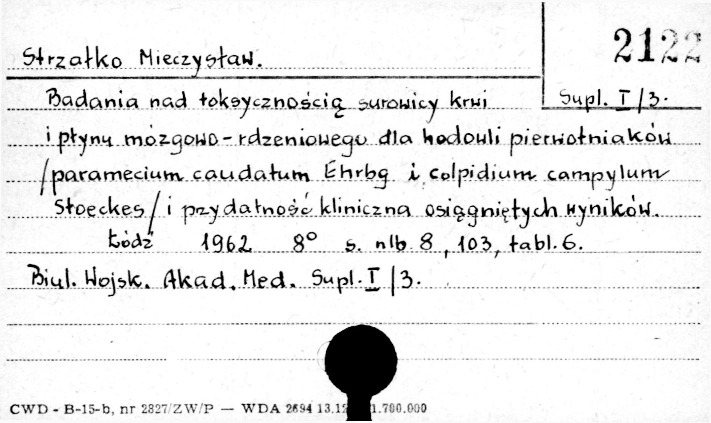 Strzałko Mieczysław.
2122
Supl. I/3.
Badania nad toksycznością surowicy krwi
i płynu mózgowo-rdzeniowego dla hodowli pierwotniaków
/paramecium caudatum Ehrbg i colpidium campylum
Stoeckes/ i przydatność kliniczna osiągniętych wyników.
Łódź 1962 8° s. nlb. 8, 103, tabl. 6.
Biul. Wojsk. Akad. Med. Supl. I/3.
CWD - B-15-b, nr 2827/ZW/P — WDA 2694 13.12 1.700.000